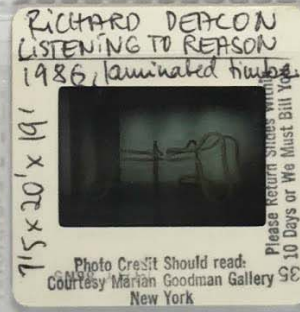 RICHARD DEACON
LISTENING TO REASON
1986, laminated timber
7'5 x 20' x 19'
Please Return Slides Within
10 Days or We Must Bill You
35
Photo Credit Should read:
Courtesy Marian Goodman Gallery
New York